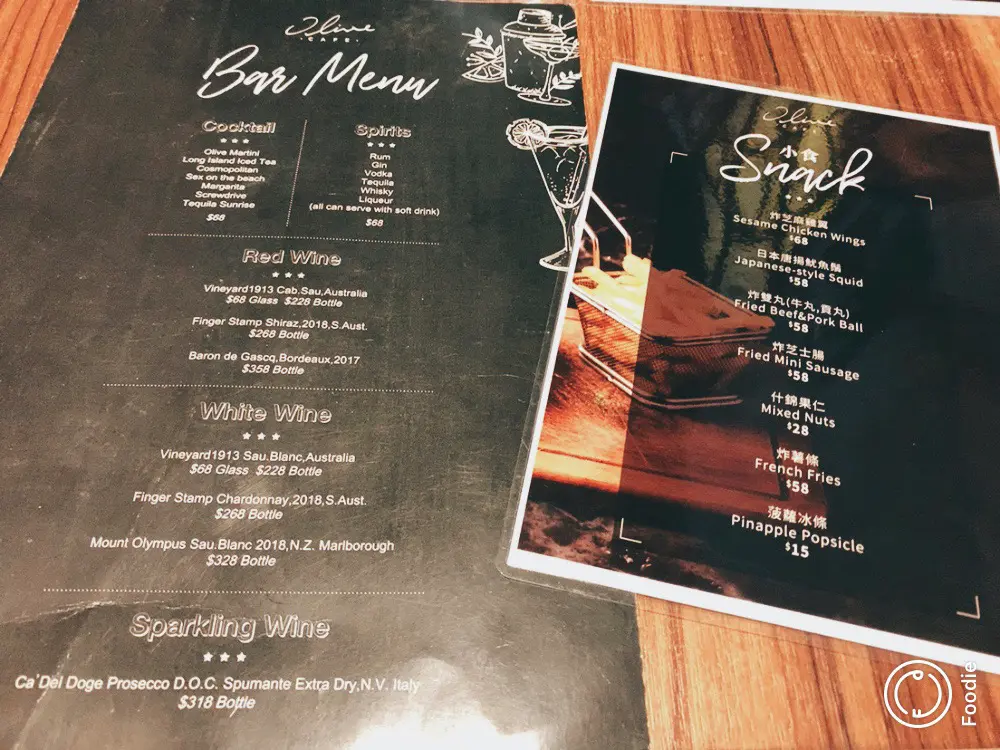 Olive
·CAFE·
Bar Menu
Cocktail
Olive Martini
Long Island Iced Tea
Cosmopolitan
Sex on the beach
Margarita
Screwdrive
Tequila Sunrise
$68
Spirits
Rum
Gin
Vodka
Tequila
Whisky
Liqueur
(all can serve with soft drink)
$68
Red Wine
Vineyard1913 Cab.Sau,Australia
$68 Glass $228 Bottle
Finger Stamp Shiraz,2018,S.Aust.
$268 Bottle
Baron de Gascq,Bordeaux,2017
$358 Bottle
White Wine
Vineyard1913 Sau.Blanc,Australia
$68 Glass $228 Bottle
Finger Stamp Chardonnay,2018,S.Aust.
$268 Bottle
Mount Olympus Sau.Blanc 2018,N.Z. Marlborough
$328 Bottle
Sparkling Wine
Ca'Dei Doge Prosecco D.O.C. Spumante Extra Dry,N.V. Italy
$318 Bottle
Olive
CAFE
小食
Snack
炸芝麻雞翼
Sesame Chicken Wings
$68
日本唐揚魷魚鬚
Japanese-style Squid
$58
炸雙丸(牛丸,貢丸)
Fried Beef&Pork Ball
$58
炸芝士腸
Fried Mini Sausage
$58
什錦果仁
Mixed Nuts
$28
炸薯條
French Fries
$58
菠蘿冰條
Pinapple Popsicle
$15
Foodie